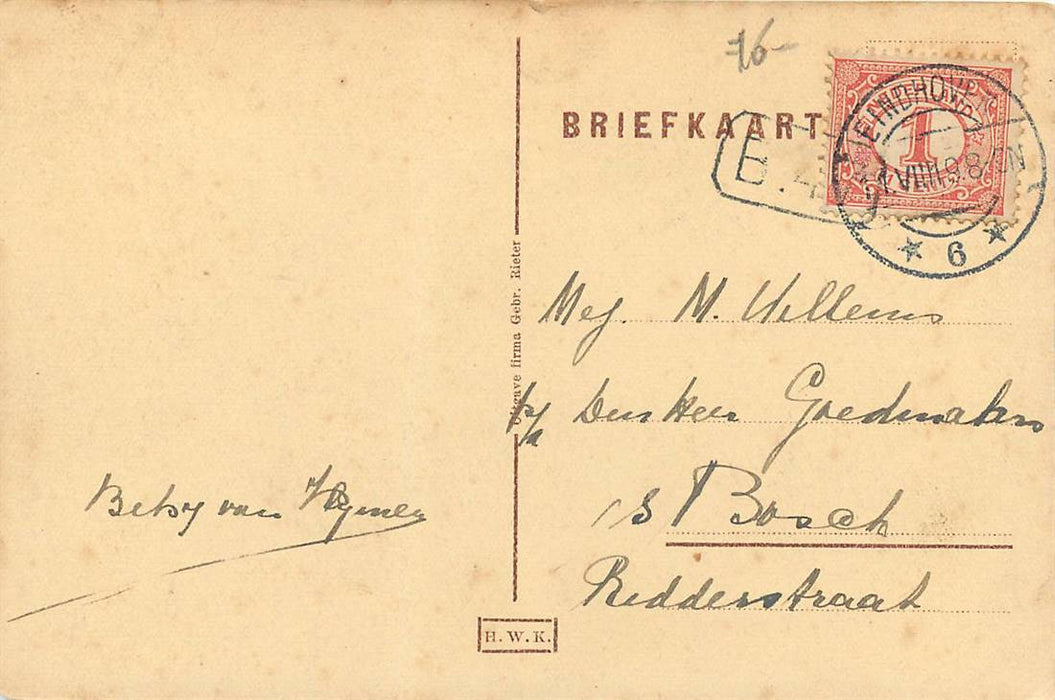 76-
BRIEFKAART
B.4
1
EINDHOVEN
6
Uitgave firma Gebr. Rieter
Mej. M. Willems
p/a Den Heer Goedmakers
's Bosch
Ridderstraat
Betsy van
H.W.K.